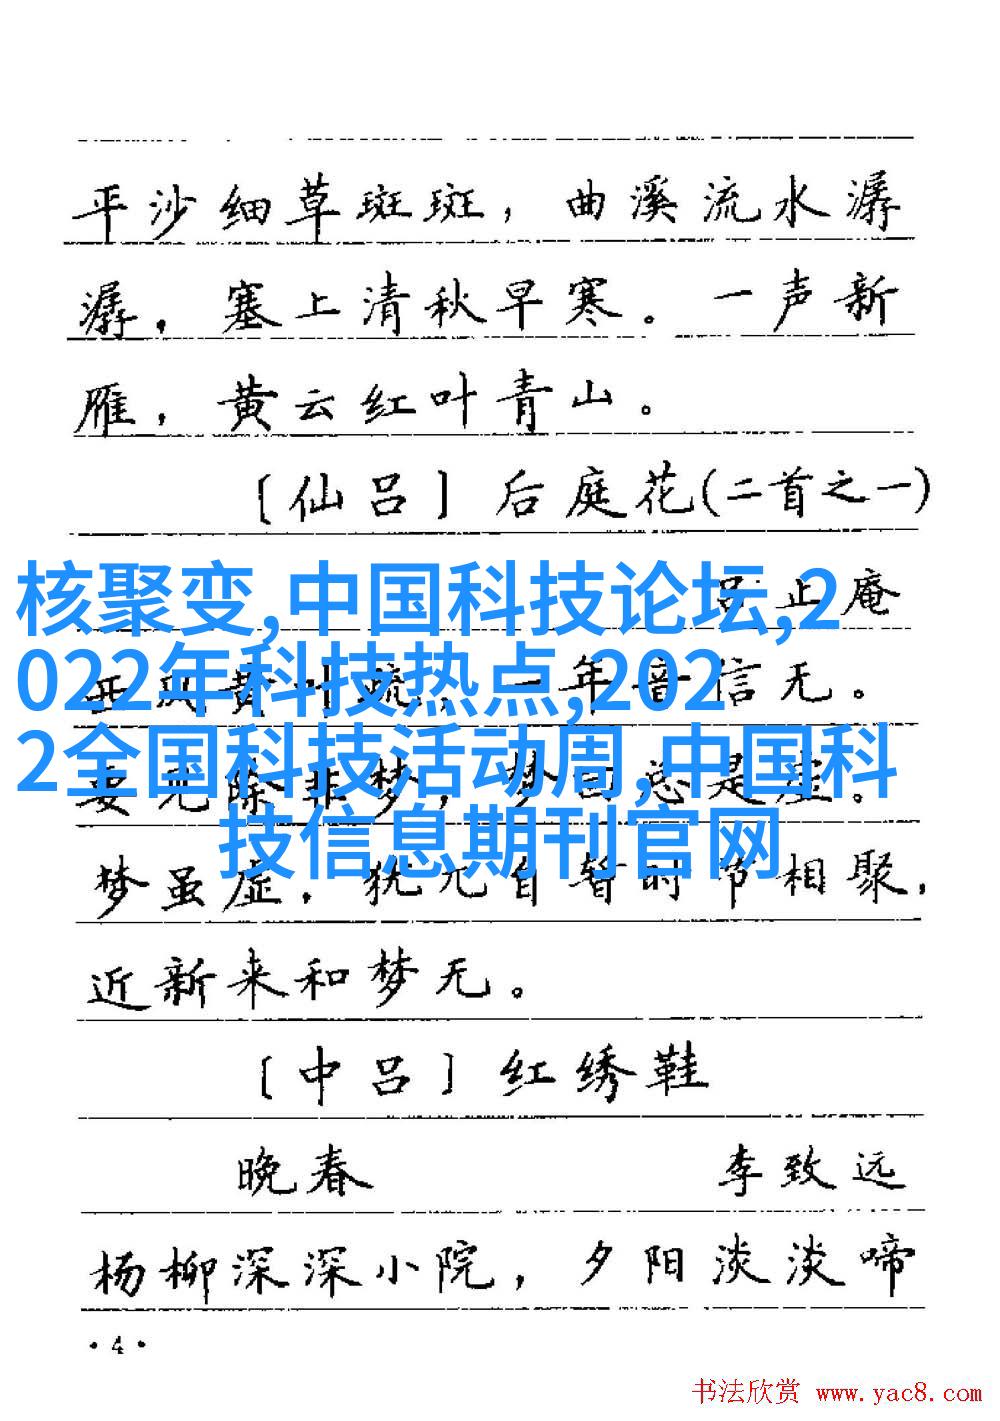 平沙细草斑斑，曲溪流水潺
潺，塞上清秋早寒。一声新
雁，黄云红叶青山。
〔仙吕〕后庭花(二首之一)
吕止庵
核聚变,中国科技论坛,2
022年科技热点,202
2全国科技活动周,中国科
技信息期刊官网
年音信无。
除非梦，梦
总是虚。
梦虽虚，犹兀自暂时节相聚，
近新来和梦无。
〔中吕〕红绣鞋
晚春 李致远
杨柳深深小院，夕阳淡淡啼
·4·
书法欣赏 www.yac8.com